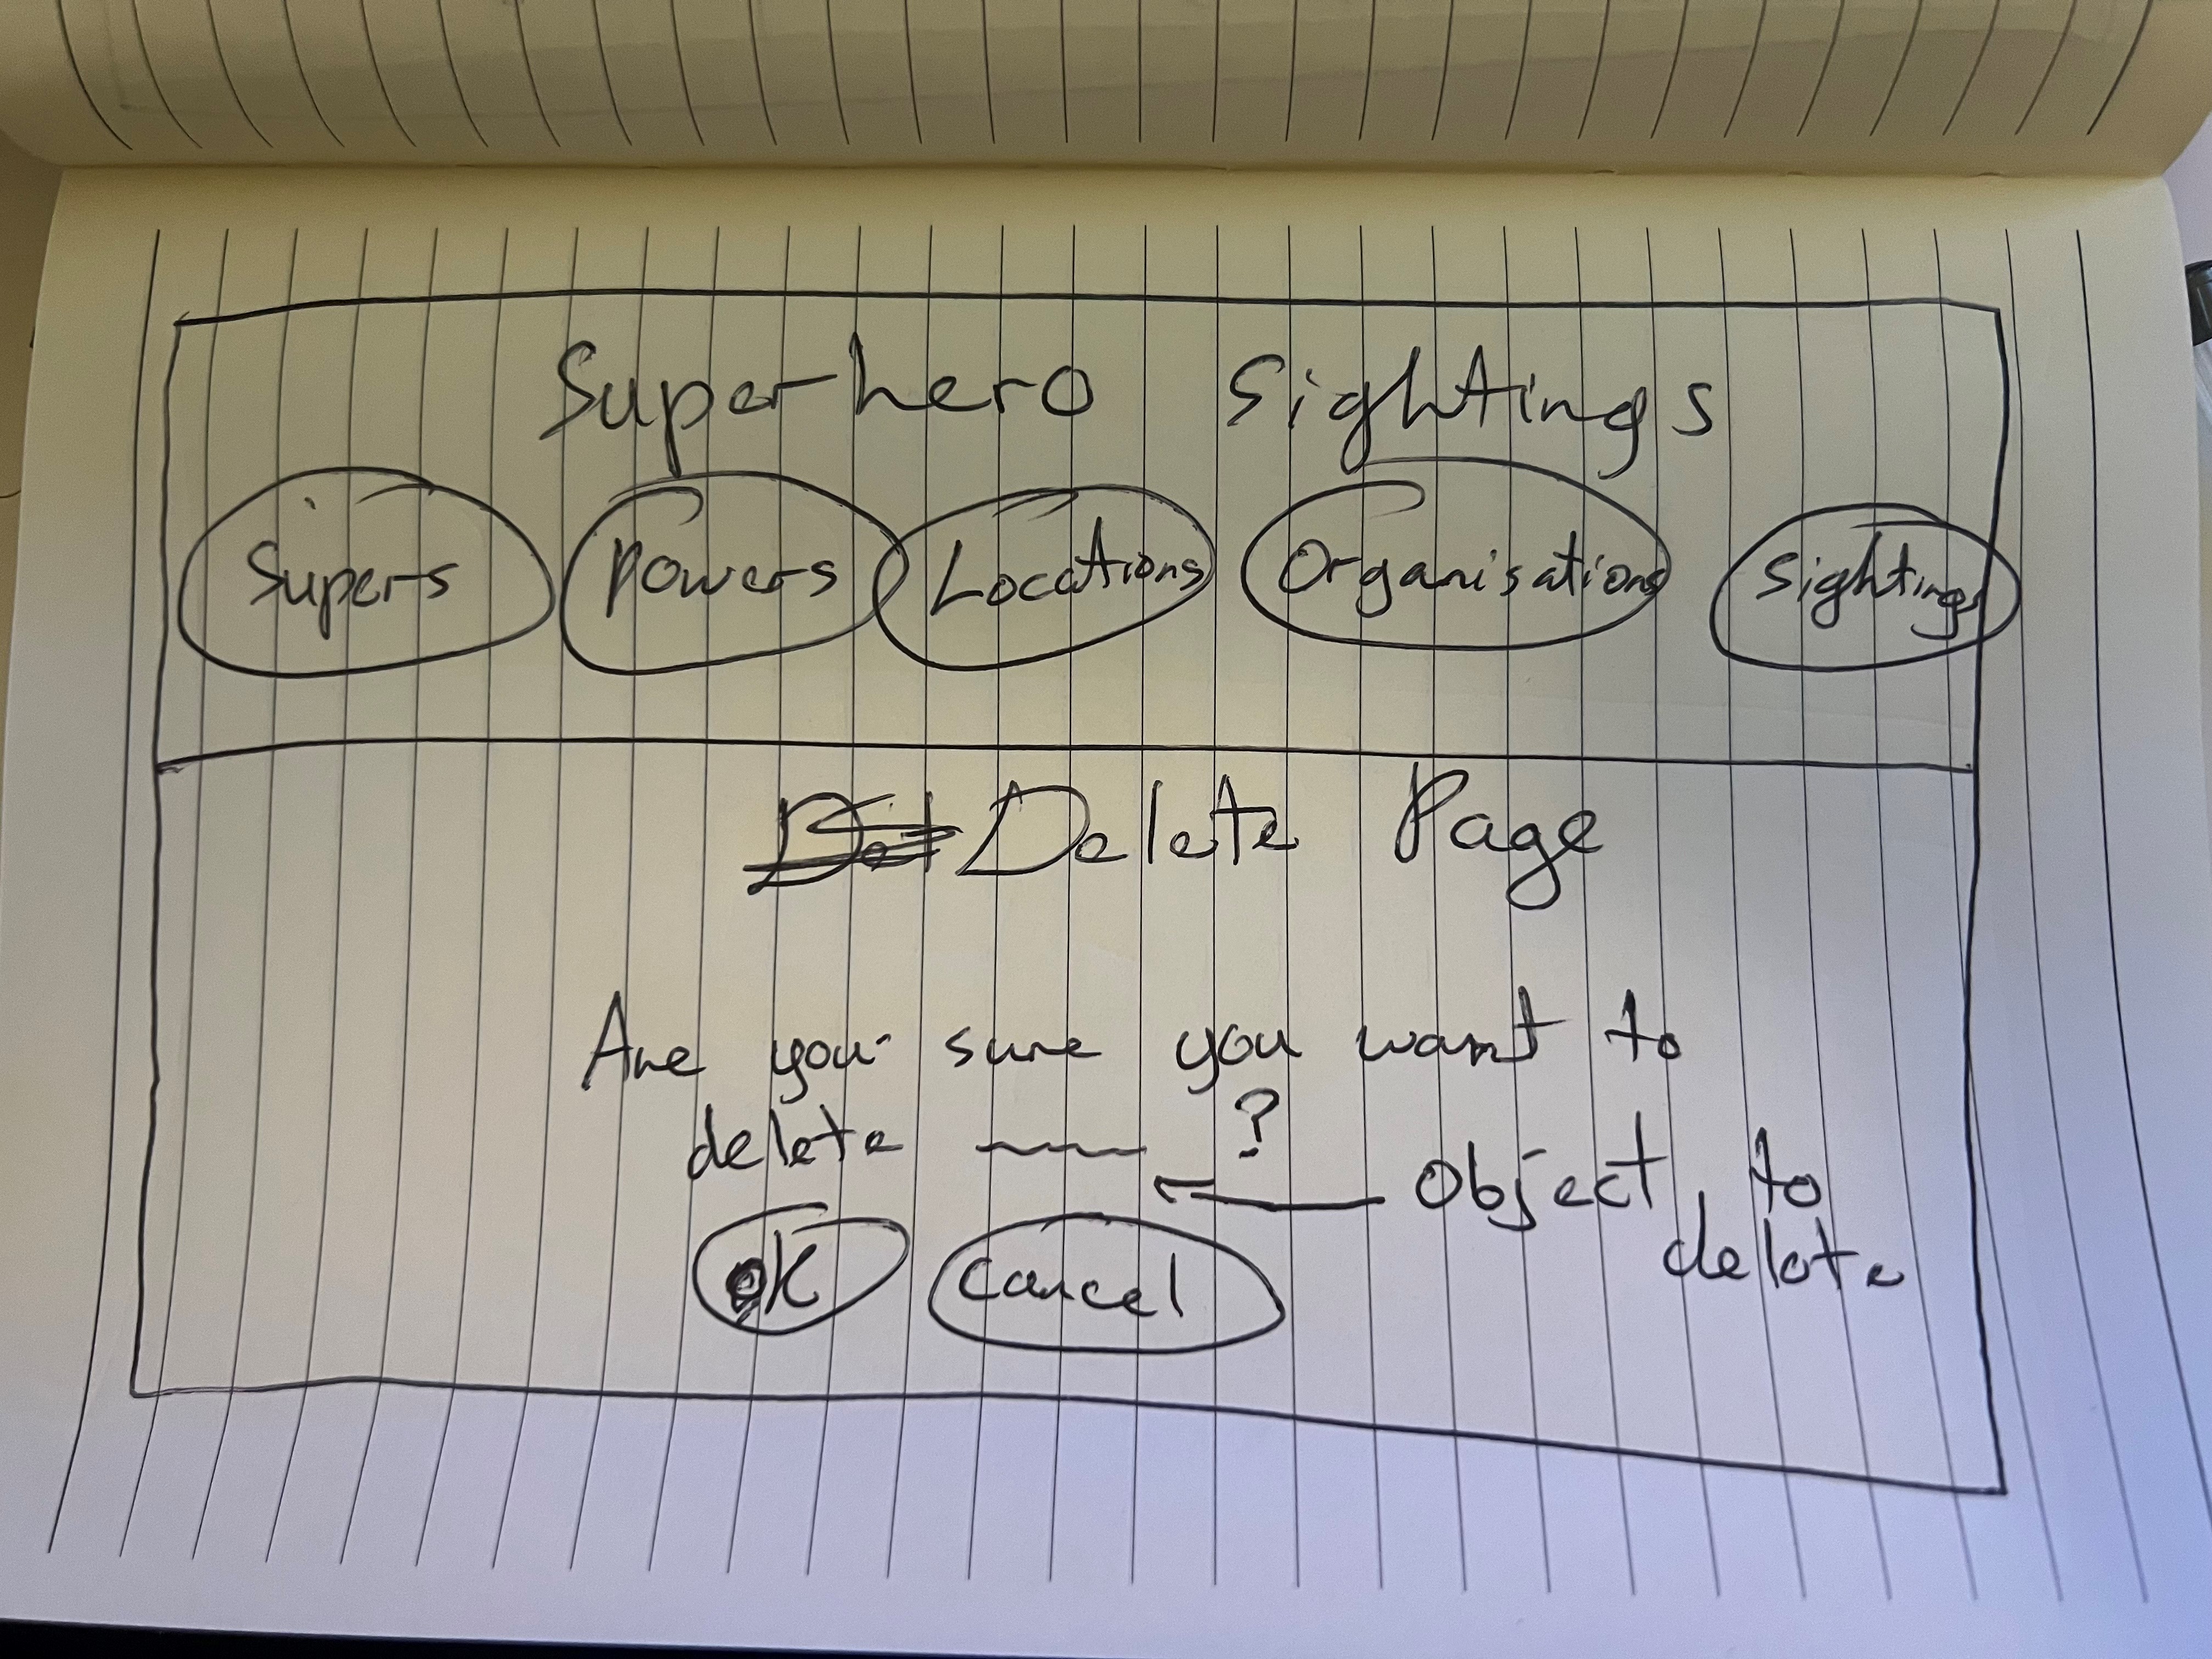 Superhero Sightings
Supers Powers Locations Organisations Sightings
Delete Page
Are you sure you want to
delete ?
Object to
delete
OK Cancel